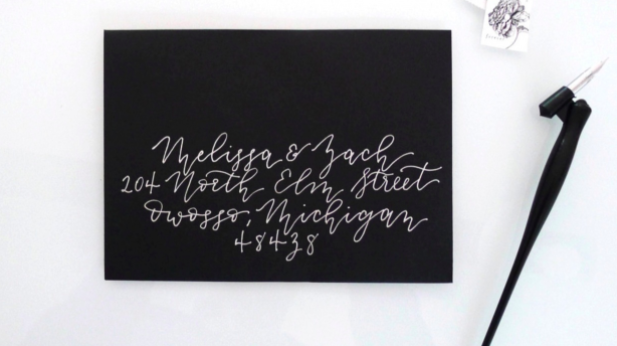 Melissa & Zach
204 North Elm Street
Owosso, Michigan
48438